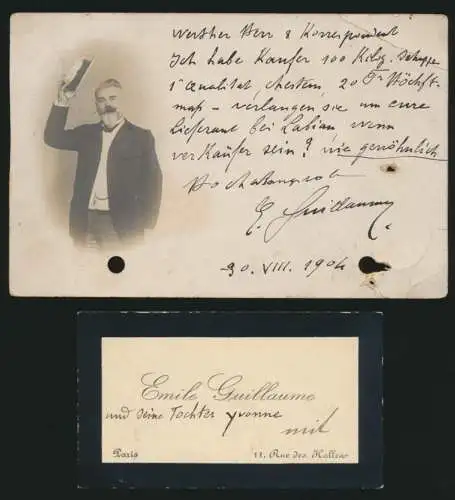 Werther Herr & Korrespondent
Ich habe Kaufer 100 Kilog.
1ª Qualität, 20 Höchst-
maß – verlangen sie um eure
lieferant bei Labian, wenn
verkäufer sein? wie gewöhnlich
Hochatungsvol
E. Guillaume
30. VIII. 1904
Emile Guillaume
und seine Tochter Yvonne
mit
Paris 11, Rue des Halles